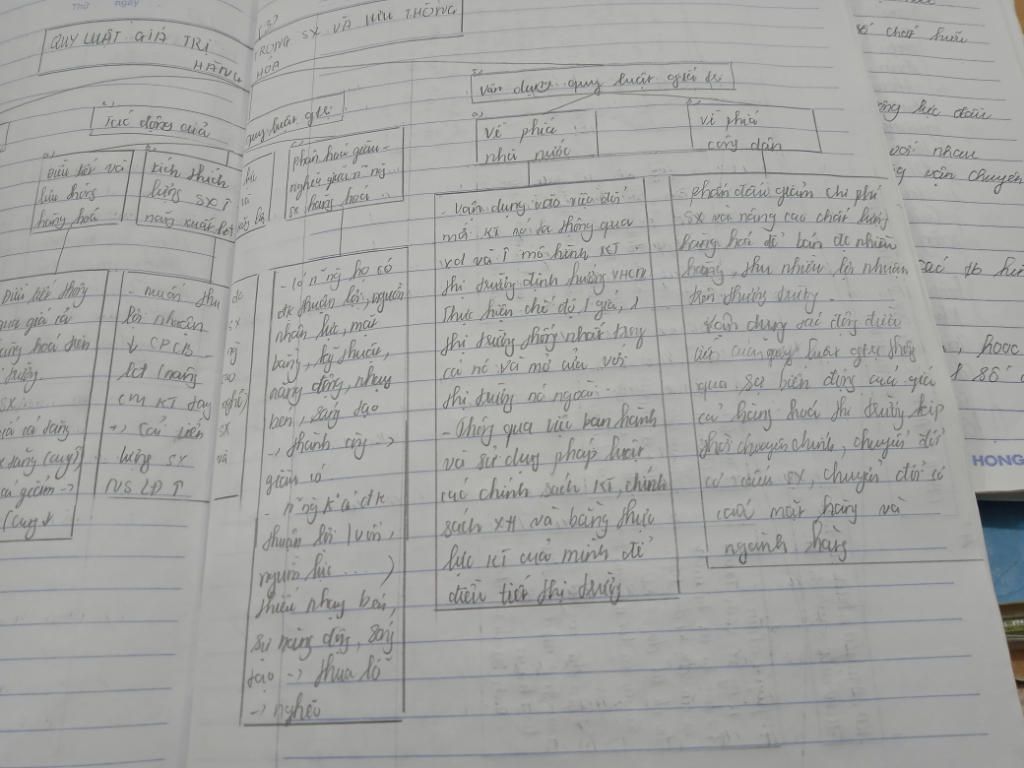 Thứ ngày
QUY LUẬT GIÁ TRỊ
HÀNG
(3)
TRONG SX VÀ LƯU THÔNG
HOÁ
2)
Tác động của
quy luật gtri
3)
vận dụng quy luật giá trị
a)
Điều tiết và
lưu thông
hàng hoá
b)
kích thích
lượng SX ↑
năng xuất
c)
phân hoá giàu -
nghèo giữa n~ ng
sx hàng hoá
a)
về phía
nhà nước
b)
về phía
công dân
Điều tiết
qua giá cả
hàng hoá
SX
giá cả tăng
giảm ->
- muốn thu
lợi nhuận
↓ CPCB
KT
-> cải tiến
lượng SX
NS LĐ ↑
đc
sx
sx
và
- có n~ ng họ có
đk thuận lợi, nguồn
nhân lực, mặt
bằng, kỹ thuật,
năng động, nhạy
bén, sáng tạo
-> thành công ->
giàu có
- n~ng k có đk
thuận lợi (vốn,
nguồn lực ... )
thiếu nhạy bén,
sự năng động, sáng
tạo -> thua lỗ
-> nghèo
- vận dụng vào việc đổi
mới KT nc ta thông qua
xd và ↑ mô hình KT
thị trường định hướng XHCN
Thực hiện chế độ 1 giá, 1
thị trường thống nhất trong
cả nc và mở cửa với
thị trường nc ngoài.
- Thông qua việc ban hành
và sử dụng pháp luật
các chính sách KT, chính
sách XH và bằng thực
lực KT của mình để
điều tiết thị trường
- phấn đấu giảm chi phí
sx và nâng cao chất lượng
hàng hoá để bán đc nhiều
hàng, thu nhiều lợi nhuận
trên thương trường.
- Vận dụng tác động điều
tiết của quy luật gtri thông
qua sự biến động của giá
cả hàng hoá thị trường kịp
thời chuyển đổi
cơ cấu SX, chuyển đổi cơ
cấu mặt hàng và
ngành hàng
chất
lực
với nhau
vận chuyển
hoặc
số
HONG